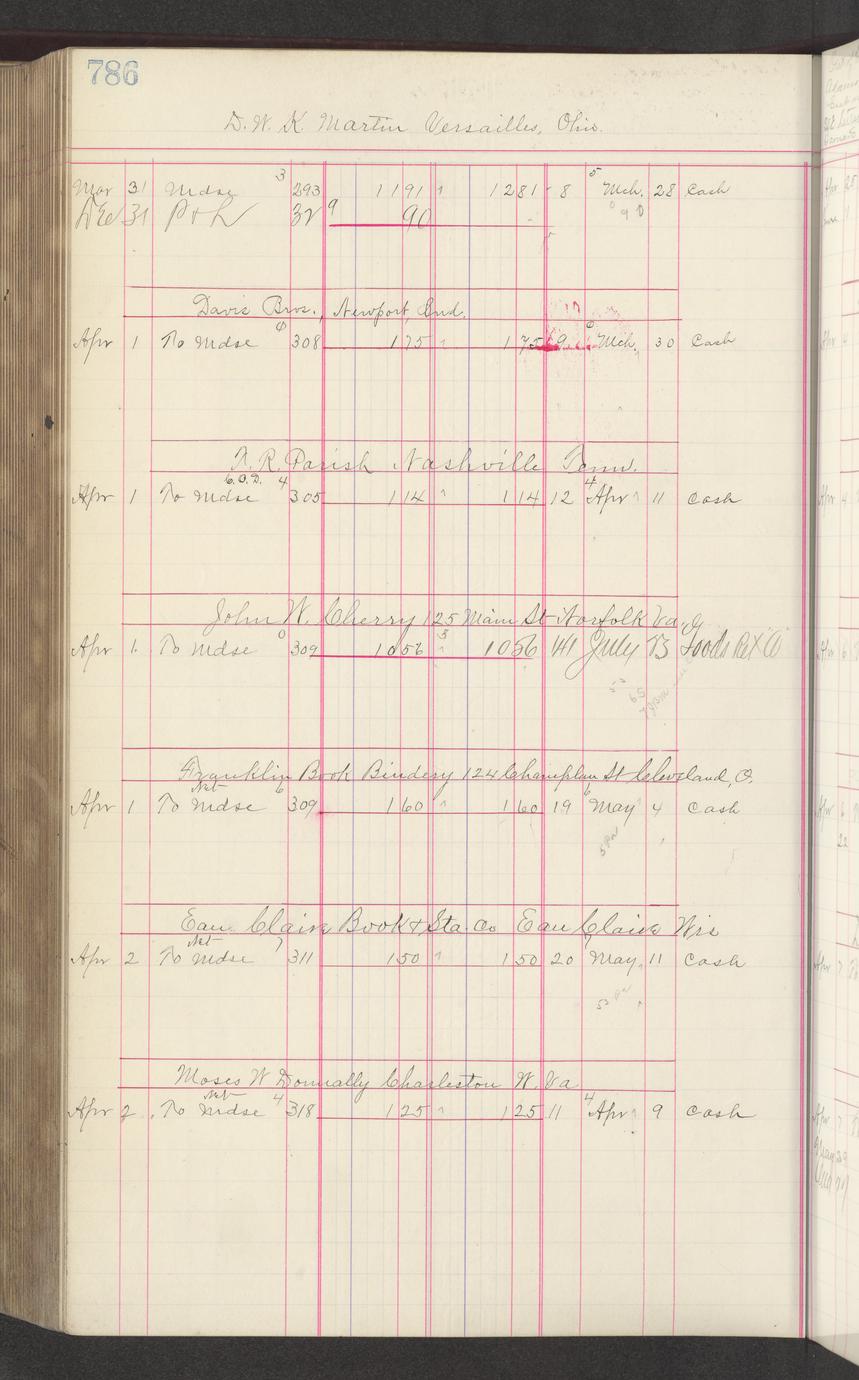 786
D. W. K. Martin Versailles, Ohio.
Mar 31 Mdse 3 293 1191 1281 8 5 Mch. 28 Cash
Dec 31 P & L 32 9 90
Davis Bros., Newport, Ind.
Apr 1 To Mdse 308 175 175 9 6 Mch. 30 Cash
Parish Nashville Tenn.
C.O.D.
Apr 1 To Mdse 4 305 114 114 12 4 Apr 11 Cash
John W. Cherry 125 Main St Norfolk Va.
Apr 1. To Mdse 0 309 1056 3 1056 141 July 13 Goods
Franklin Book Bindery 124 Champlain St Cleveland, O.
Net
Apr 1 To Mdse 6 309 160 160 19 6 May 4 Cash
Eau Claire Book & Sta. Co Eau Claire Wis
Net
Apr 2 To Mdse 7 311 150 150 20 7 May 11 Cash
Moses W Donnally Charleston W. Va
Net
Apr 2 To Mdse 4 318 125 125 11 4 Apr 9 Cash